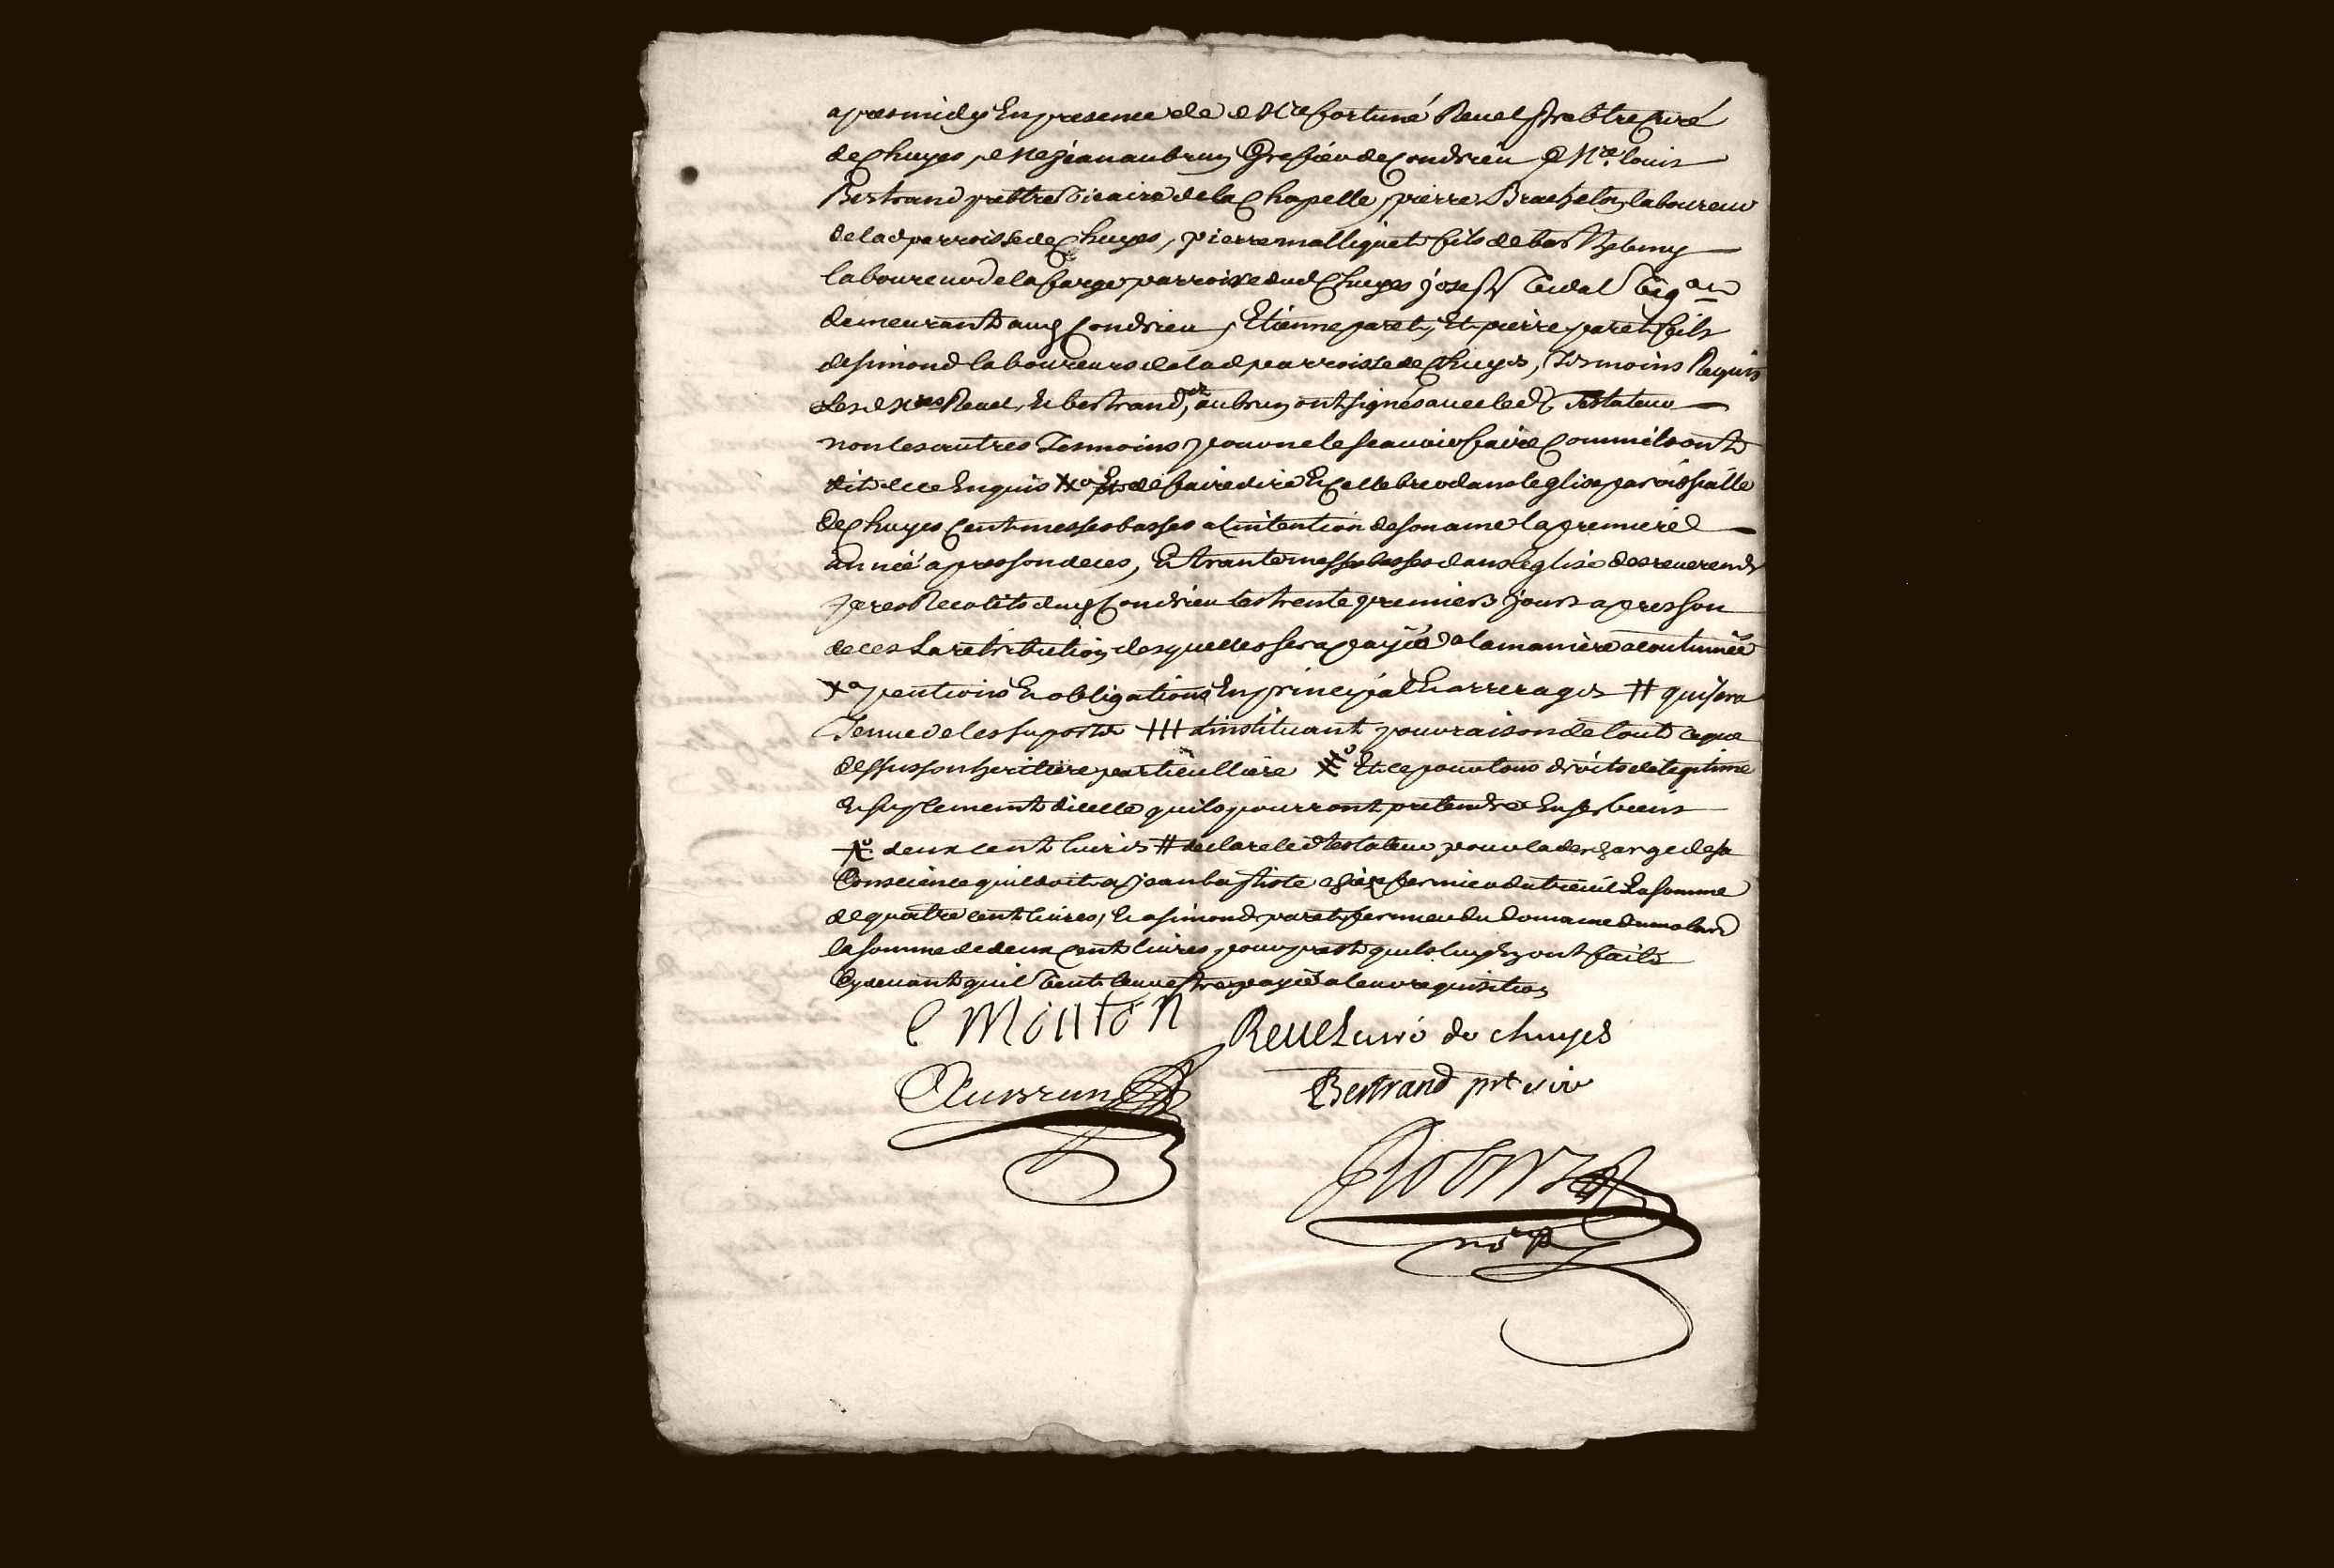 apres midy En presence de Mre fortuné Revel prebtre Curé
de Chuyes, Me jean aubrun Grefier de Condrieu Mre louis
Bertrand prebtre Vicaire de la Chapelle, pierre Brachelon laboureur
de lad parroisse de Chuyes, pierre malliquet fils de barthelemy
laboureur de la farge parroisse dud Chuyes joseph Vidal
demeurant aud Condrieu, Etienne paret, Et pierre paret fils
de simond laboureurs de lad parroisse de Chuyes, Tesmoins Requis
Lesd Mres Revel, Et bertrand, et aubrun ont signés avec led Testateur
non les autres Tesmoins pour ne le scavoir faire Comm'ils ont
dit de ce Enquis Et de faire dire Et Cellebrer dans leglise paroissialle
de Chuyes Cent messes basses a l'intention de son ame la premiere
année apres son deces, Et trante messes basses dans leglise des reverends
peres Recolets dud Condrieu les trente premiers jours apres son
deces La retribution desquelles sera payée a la maniere acoutumée
pentions Et obligations En principal Et arrerages # qui sera
Tenue de les suporter +++ linstituant pour raison de tout ce que
dessus son heritiere particulliere Et ce pour tous droits de legitime
Et suplement dicelle quils pourront pretendre En ses biens
deux cent livres # declare led testateur pour la descharge de sa
Conscience quil doit a jean baptiste fermier du treuil La somme
de quatre cent livres, Et a simond paret fermier du Domaine du
la somme de deux Cent livres pour prest quils luy En ont faits
Cy devant quil veut leur estre payée a leur requisition
C MONTON Revel curé de chuyes
Aubrun Bertrand prt vic
nore